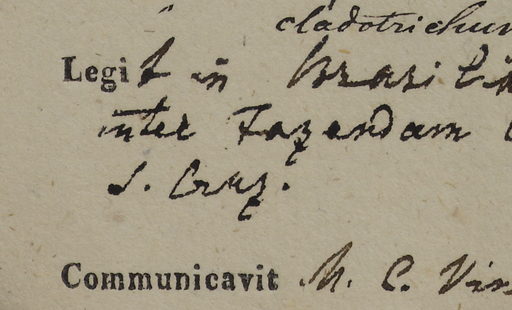 cladotrichum
Legit in Brasilia
inter Fazendam
S. Cruz.
Communicavit M. C. Vin